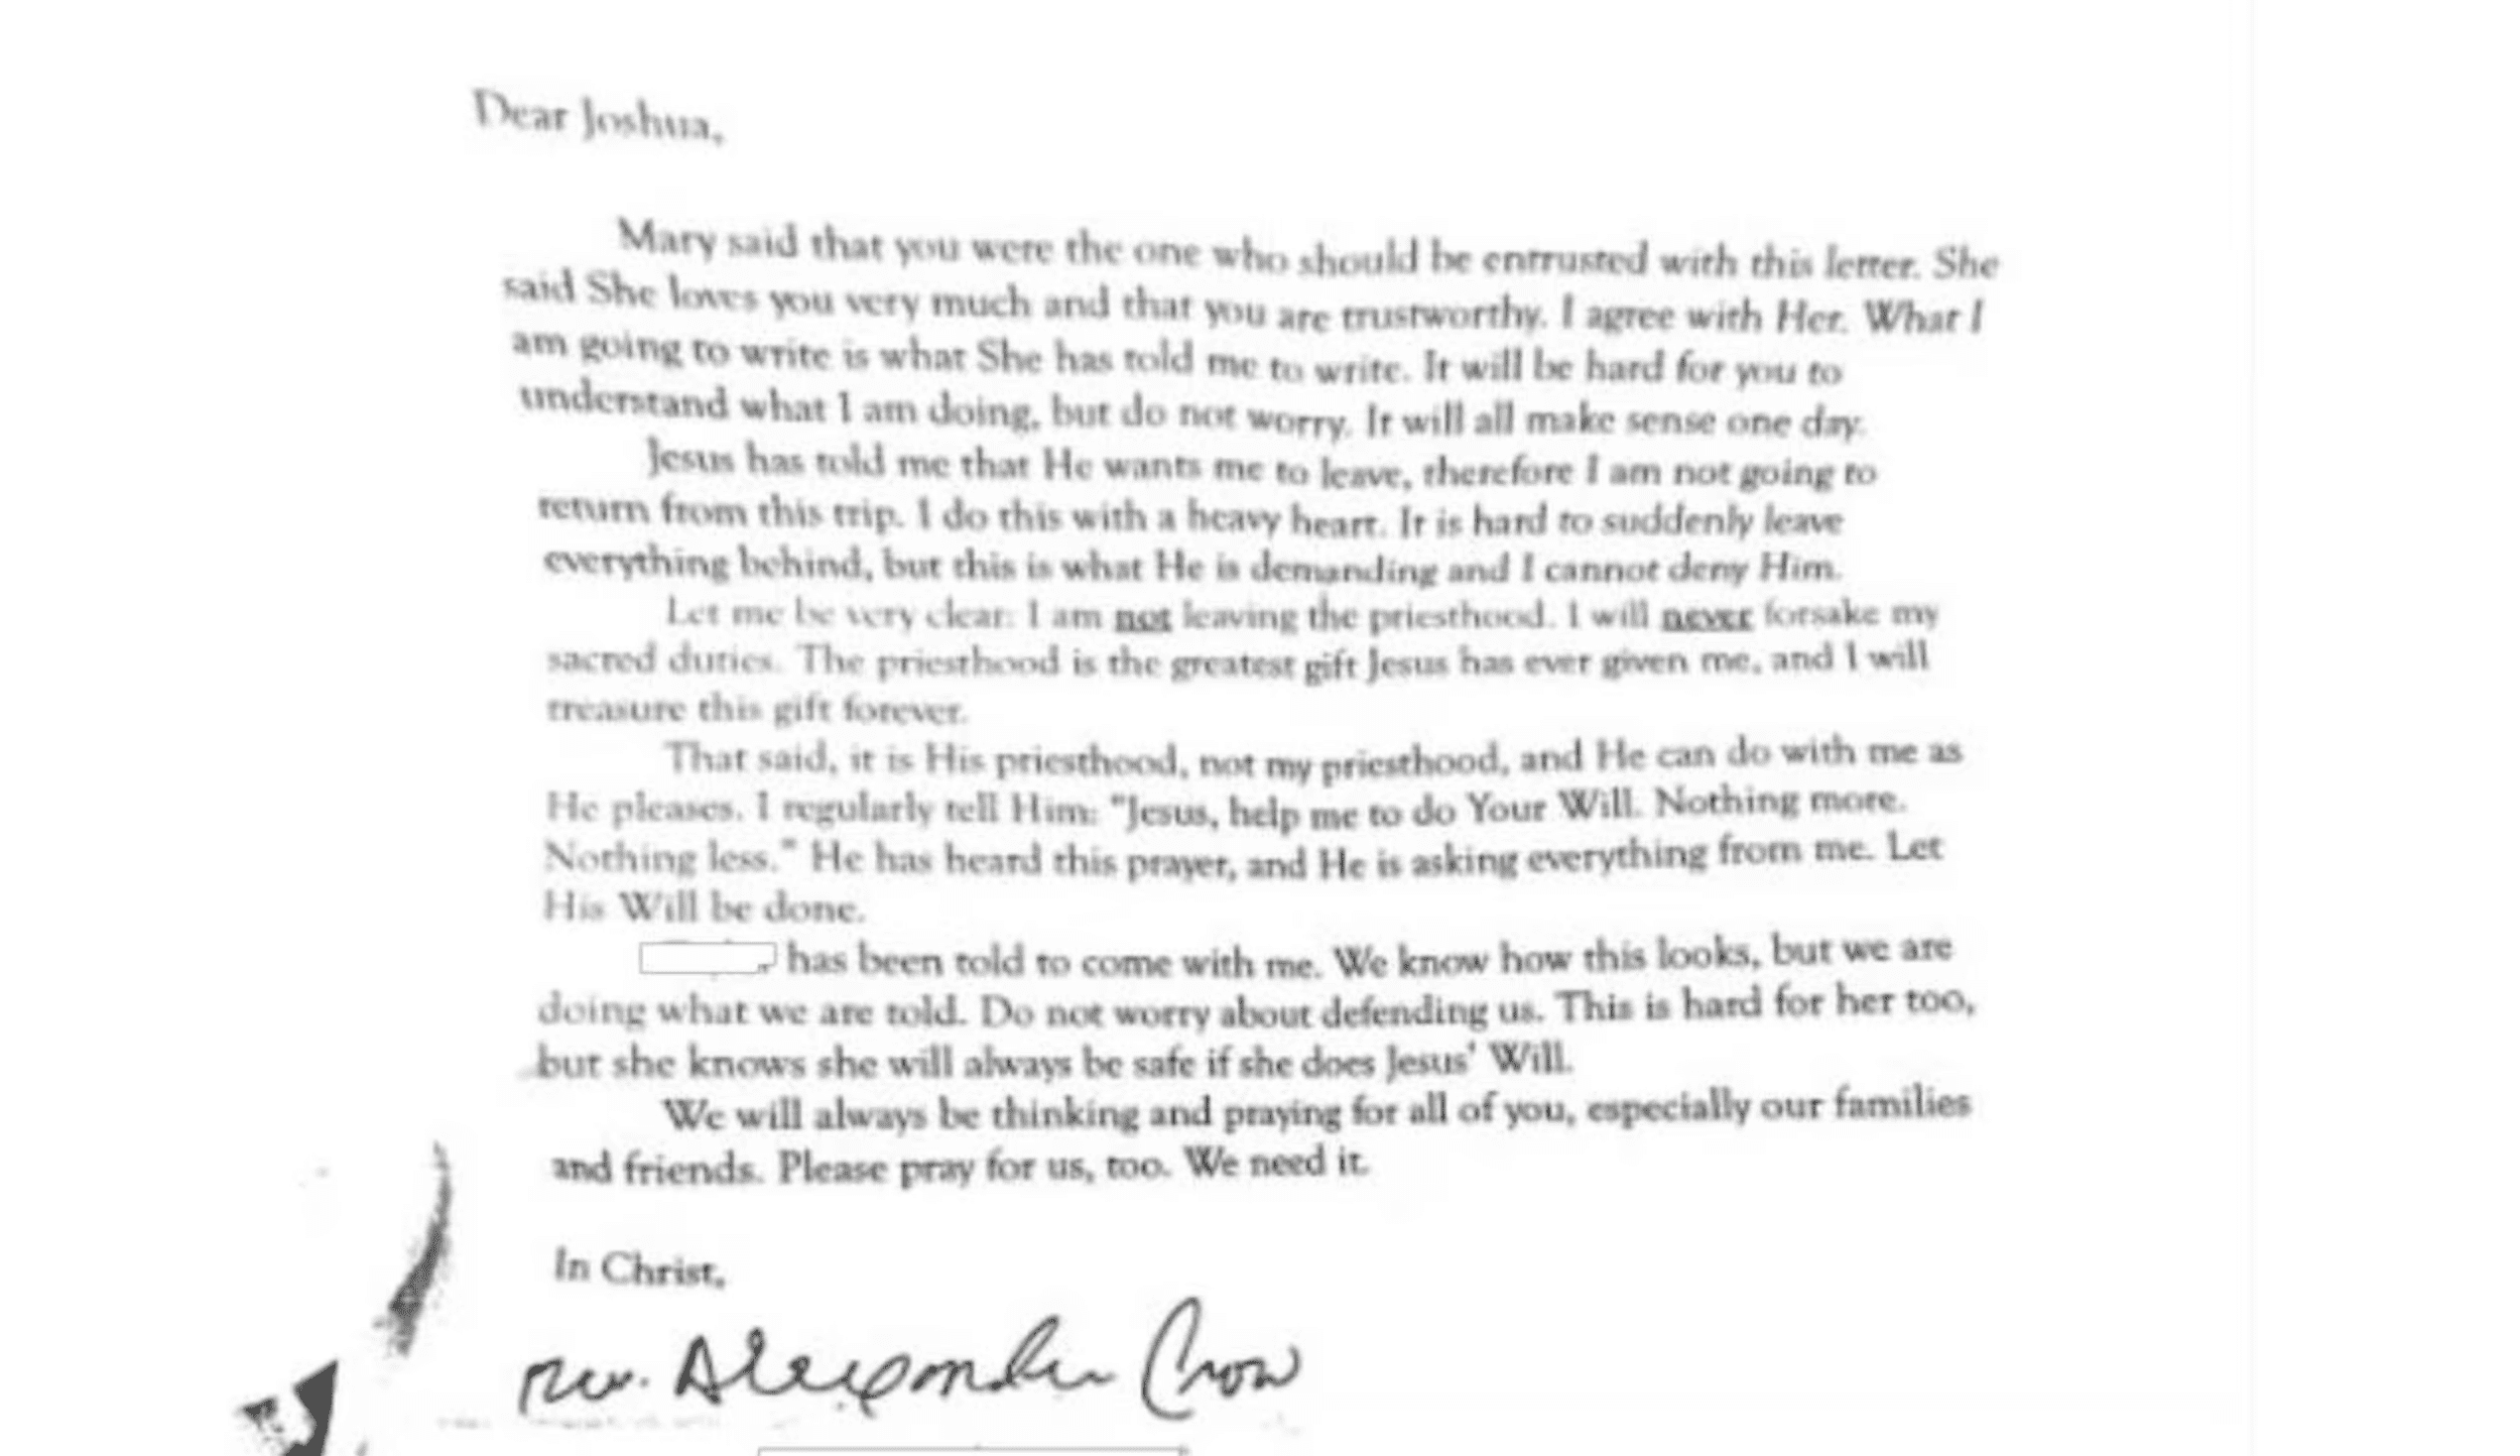 Dear Joshua,
Mary said that you were the one who should be entrusted with this letter. She
said She loves you very much and that you are trustworthy. I agree with Her. What I
am going to write is what She has told me to write. It will be hard for you to
understand what I am doing, but do not worry. It will all make sense one day.
Jesus has told me that He wants me to leave, therefore I am not going to
return from this trip. I do this with a heavy heart. It is hard to suddenly leave
everything behind, but this is what He is demanding and I cannot deny Him.
Let me be very clear: I am not leaving the priesthood. I will never forsake my
sacred duties. The priesthood is the greatest gift Jesus has ever given me, and I will
treasure this gift forever.
That said, it is His priesthood, not my priesthood, and He can do with me as
He pleases. I regularly tell Him: "Jesus, help me to do Your Will. Nothing more.
Nothing less." He has heard this prayer, and He is asking everything from me. Let
His Will be done.
has been told to come with me. We know how this looks, but we are
doing what we are told. Do not worry about defending us. This is hard for her too,
but she knows she will always be safe if she does Jesus' Will.
We will always be thinking and praying for all of you, especially our families
and friends. Please pray for us, too. We need it.
In Christ,
Rev. Alexander Crow